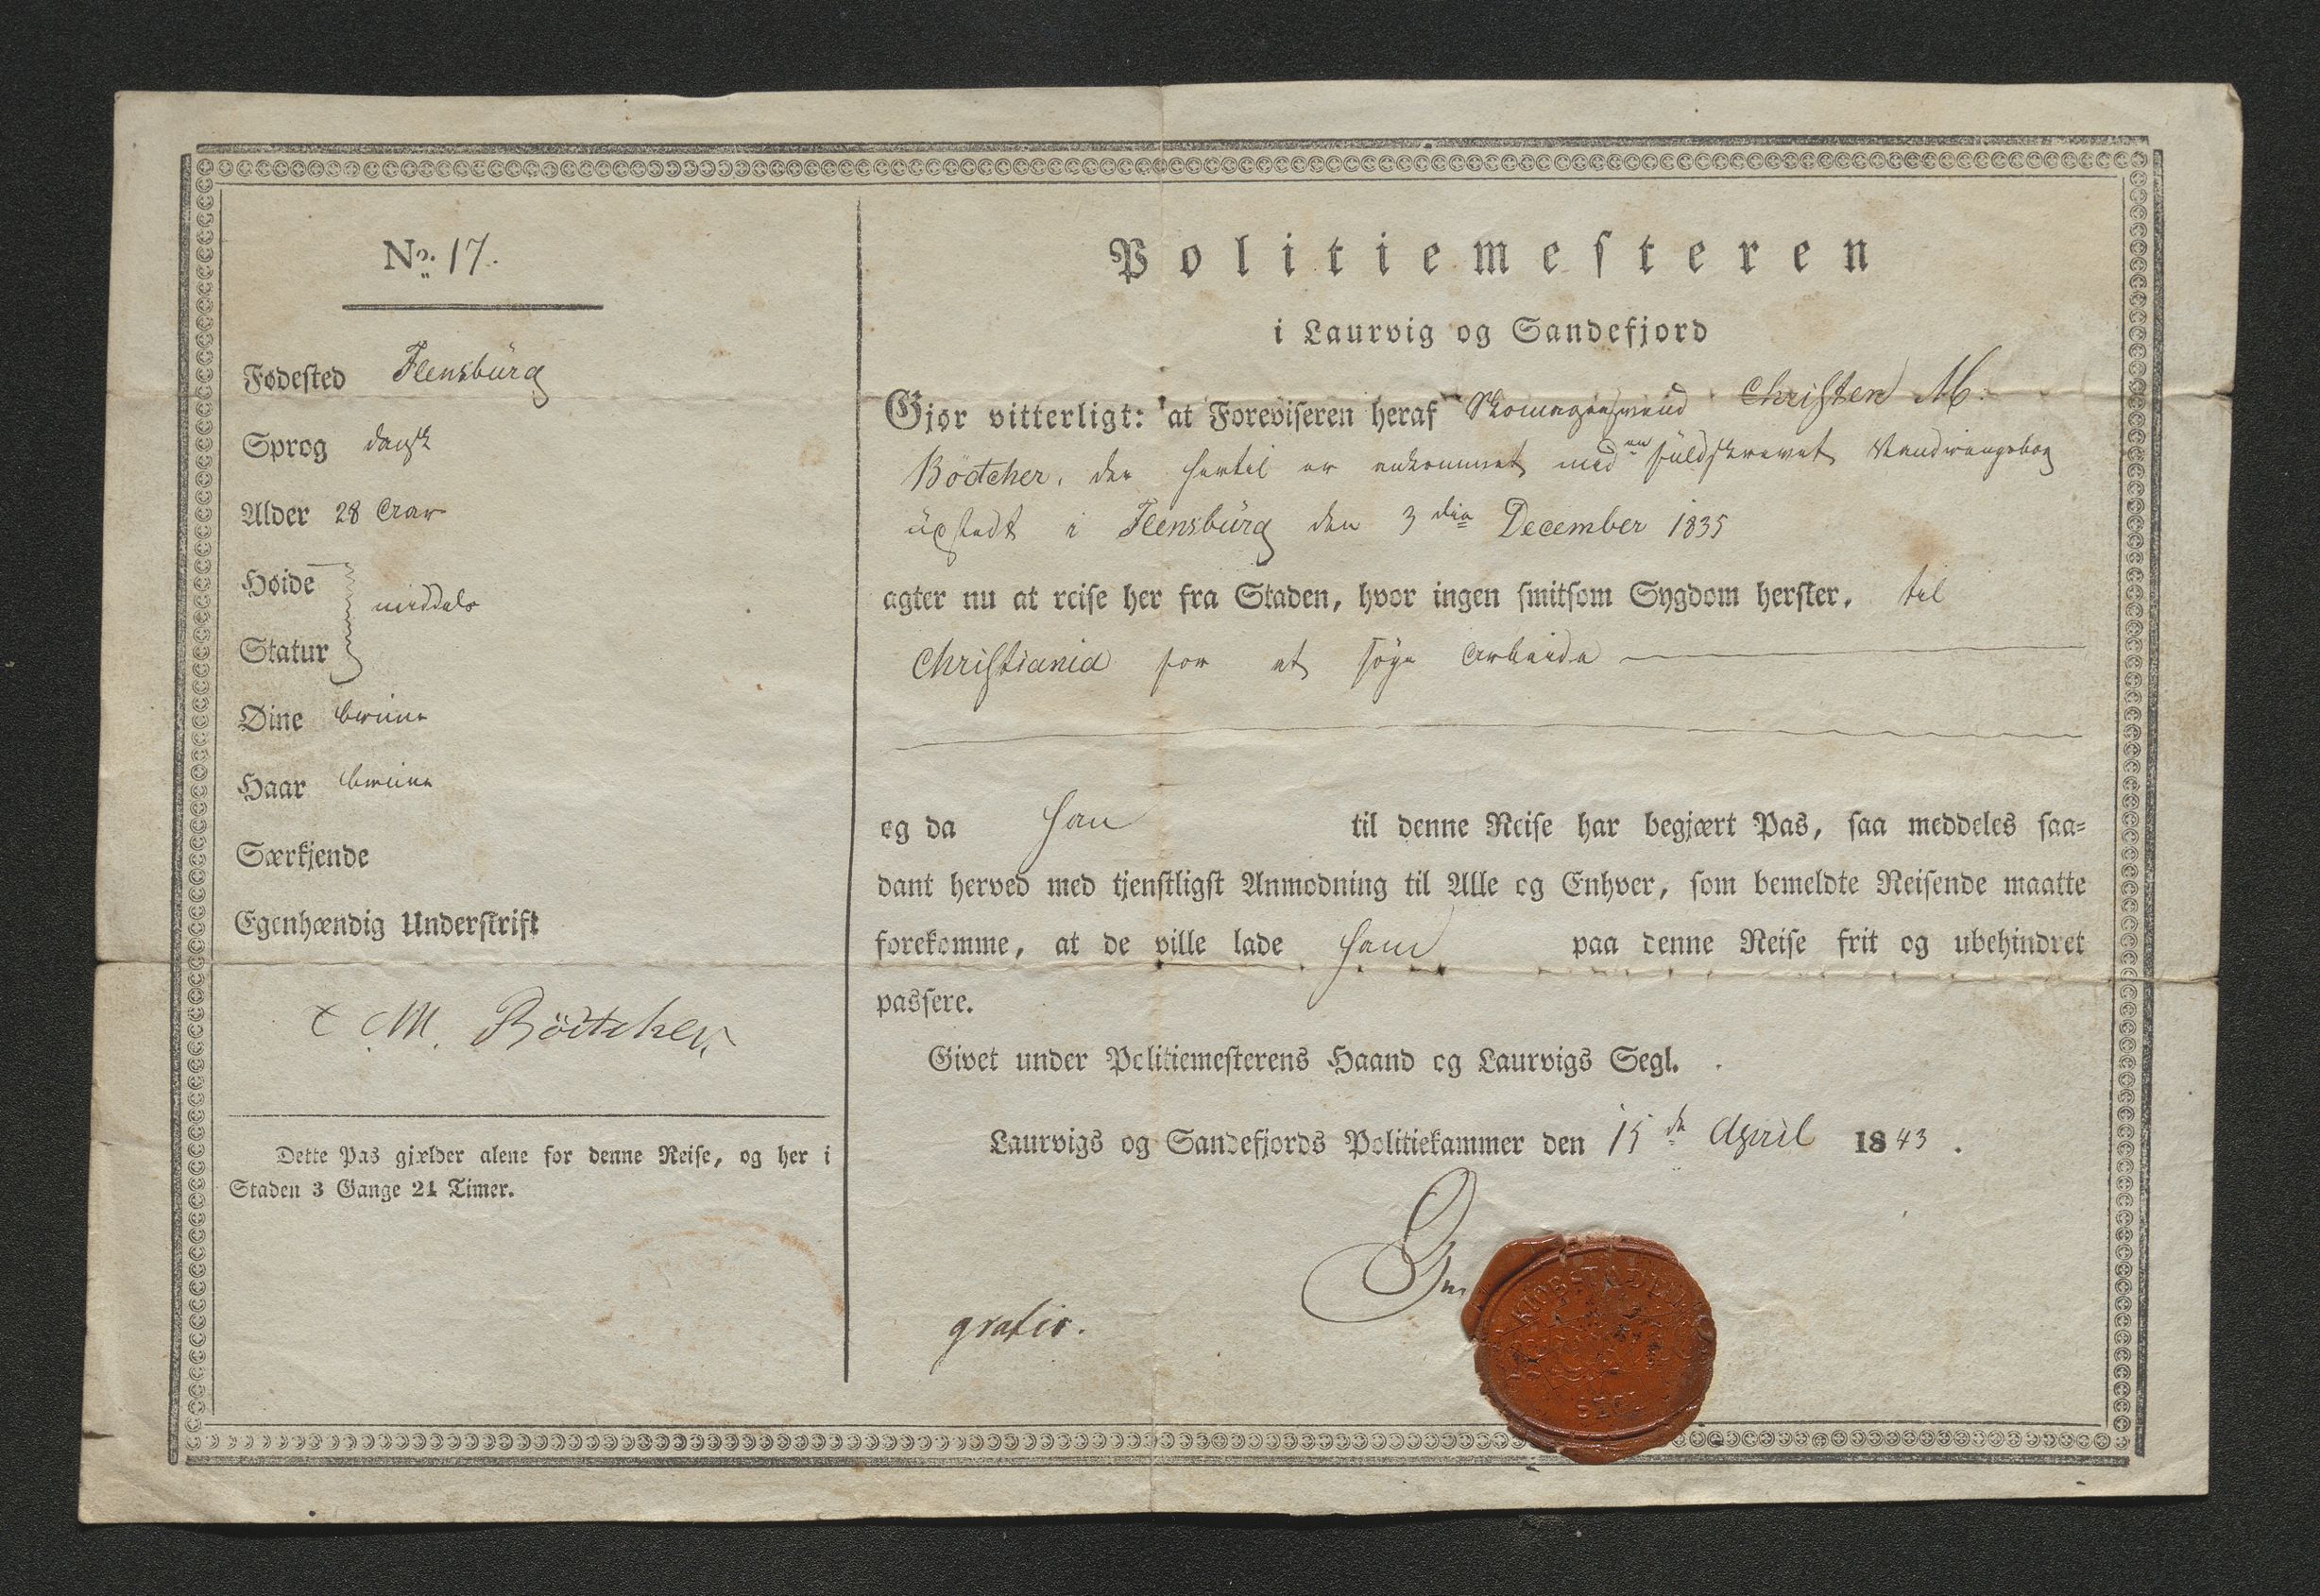 No. 17.
Fødested Flensbürg
Sprog dansk
Alder 28 Aar
Høide
middels
Statur
Øine brüne
Haar brüne
Særkjende
Egenhændig Underskrift
C M. Bödtcher.
Dette Pas gjælder alene for denne Reise, og her i
Staden 3 Gange 24 Timer.
Politiemesteren
i Laurvig og Sandefjord
Gjør vitterligt: at Foreviseren heraf Skomagersvend Christen M.
Bödtcher, der hertil er ankommet med en füldskrevet Vandringsbog
üdstedt i Flensbürg den 3die December 1835
agter nu at reise her fra Staden, hvor ingen smitsom Sygdom hersker, til
Christiania for at søge Arbeide
og da han til denne Reise har begjært Pas, saa meddeles saa-
dant herved med tjenstligst Anmodning til Alle og Enhver, som bemeldte Reisende maatte
forekomme, at de ville lade ham paa denne Reise frit og ubehindret
passere.
Givet under Politiemesterens Haand og Laurvigs Segl.
Laurvigs og Sandefjords Politiekammer den 15de April 1843.
gratis.
KIØBSTADEN
SEGL